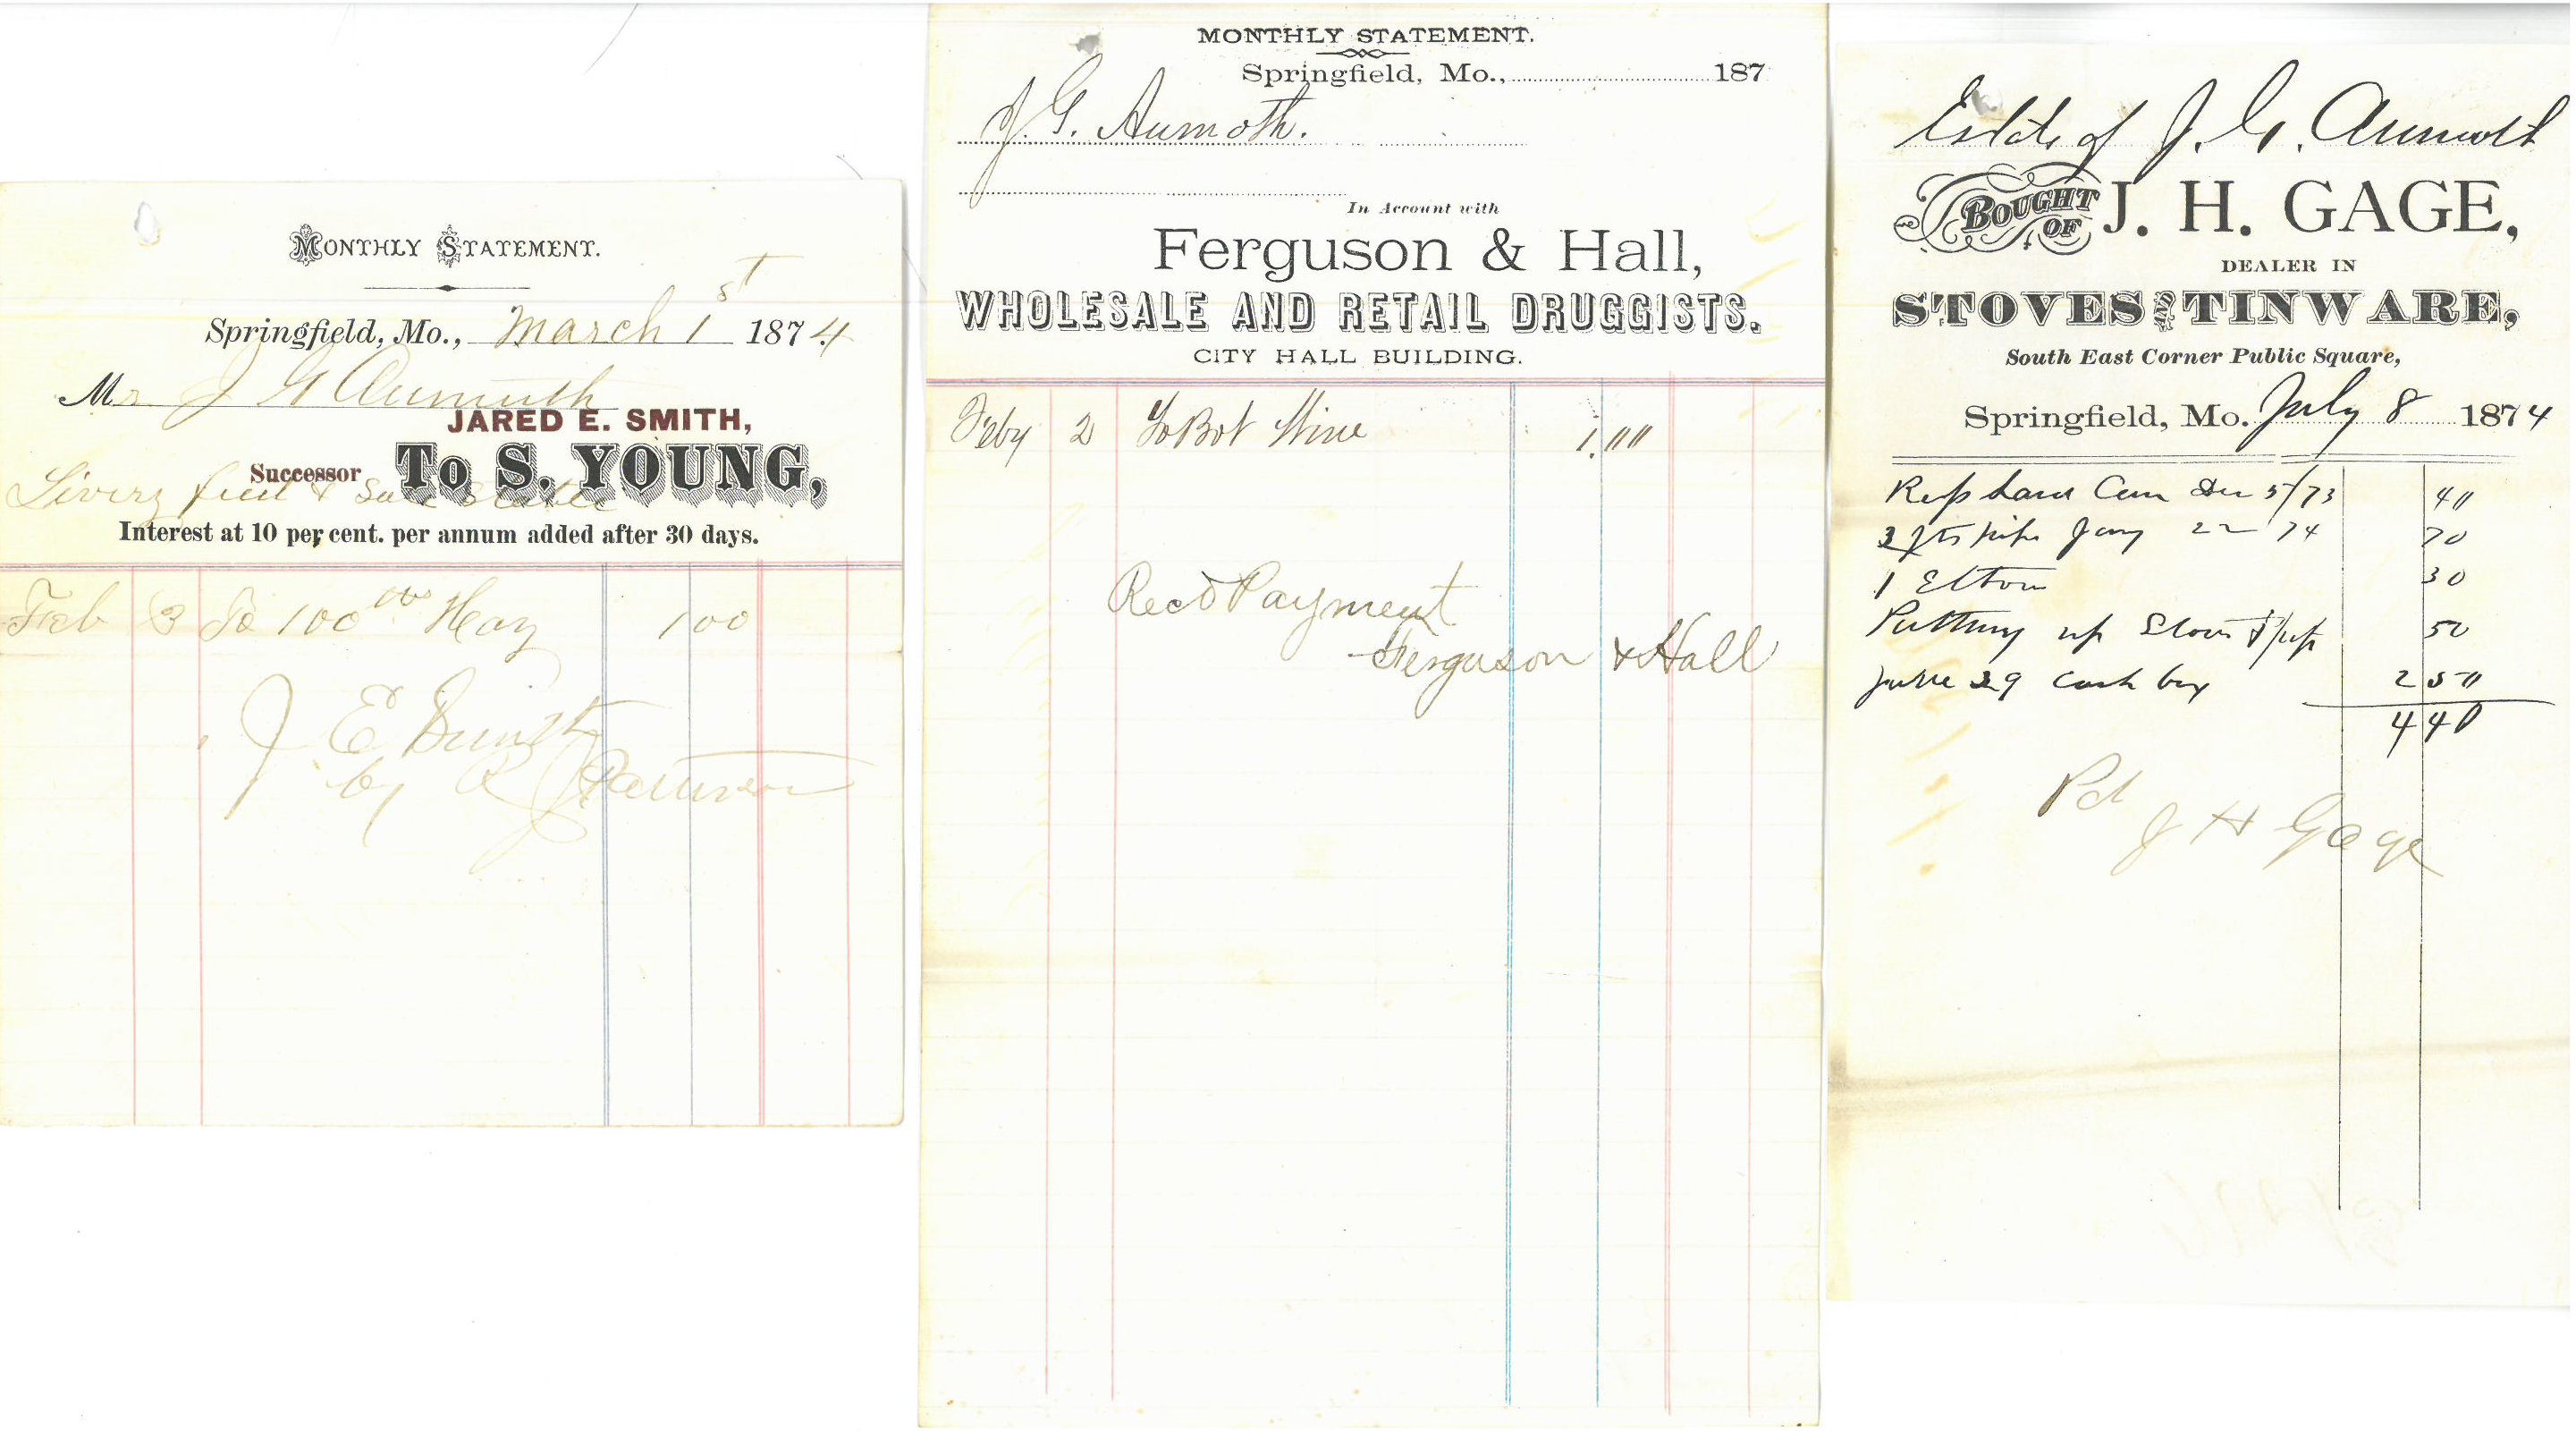 MONTHLY STATEMENT.
Springfield, Mo., March 1st 1874
Mr J G Aumuth
JARED E. SMITH,
Successor To S. YOUNG,
Livery feed & Sale Stable
Interest at 10 per cent. per annum added after 30 days.
Feb 3 To 100 Hay 1 00
J E Smith
by R J
MONTHLY STATEMENT.
Springfield, Mo., 187
J. G. Aumoth.
In Account with
Ferguson & Hall,
WHOLESALE AND RETAIL DRUGGISTS.
CITY HALL BUILDING.
Feby 2 To Bot Wine 1.00
Recd Payment
Ferguson & Hall
Estate of J. G. Aumoth
BOUGHT OF J. H. GAGE,
DEALER IN
STOVES AND TINWARE,
South East Corner Public Square,
Springfield, Mo. July 8 1874
Rep Can Dec 5/73 40
pipe Jany 22 74 70
1 Elbow 30
Putting up Stove & pipe 50
June 29 cash box 2 50
4 40
Pd
J H Gage